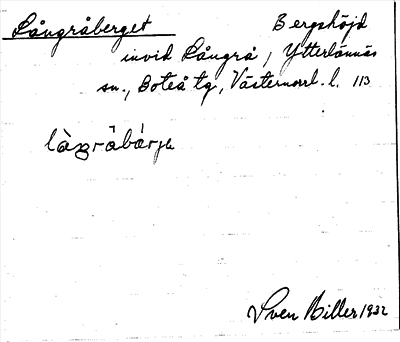 Långråberget Bergshöjd
invid Långrå, Ytterlännäs
sn., Boteå tg, Västernorrl. l. 113
làŋråbárja
Sven Biller 1932